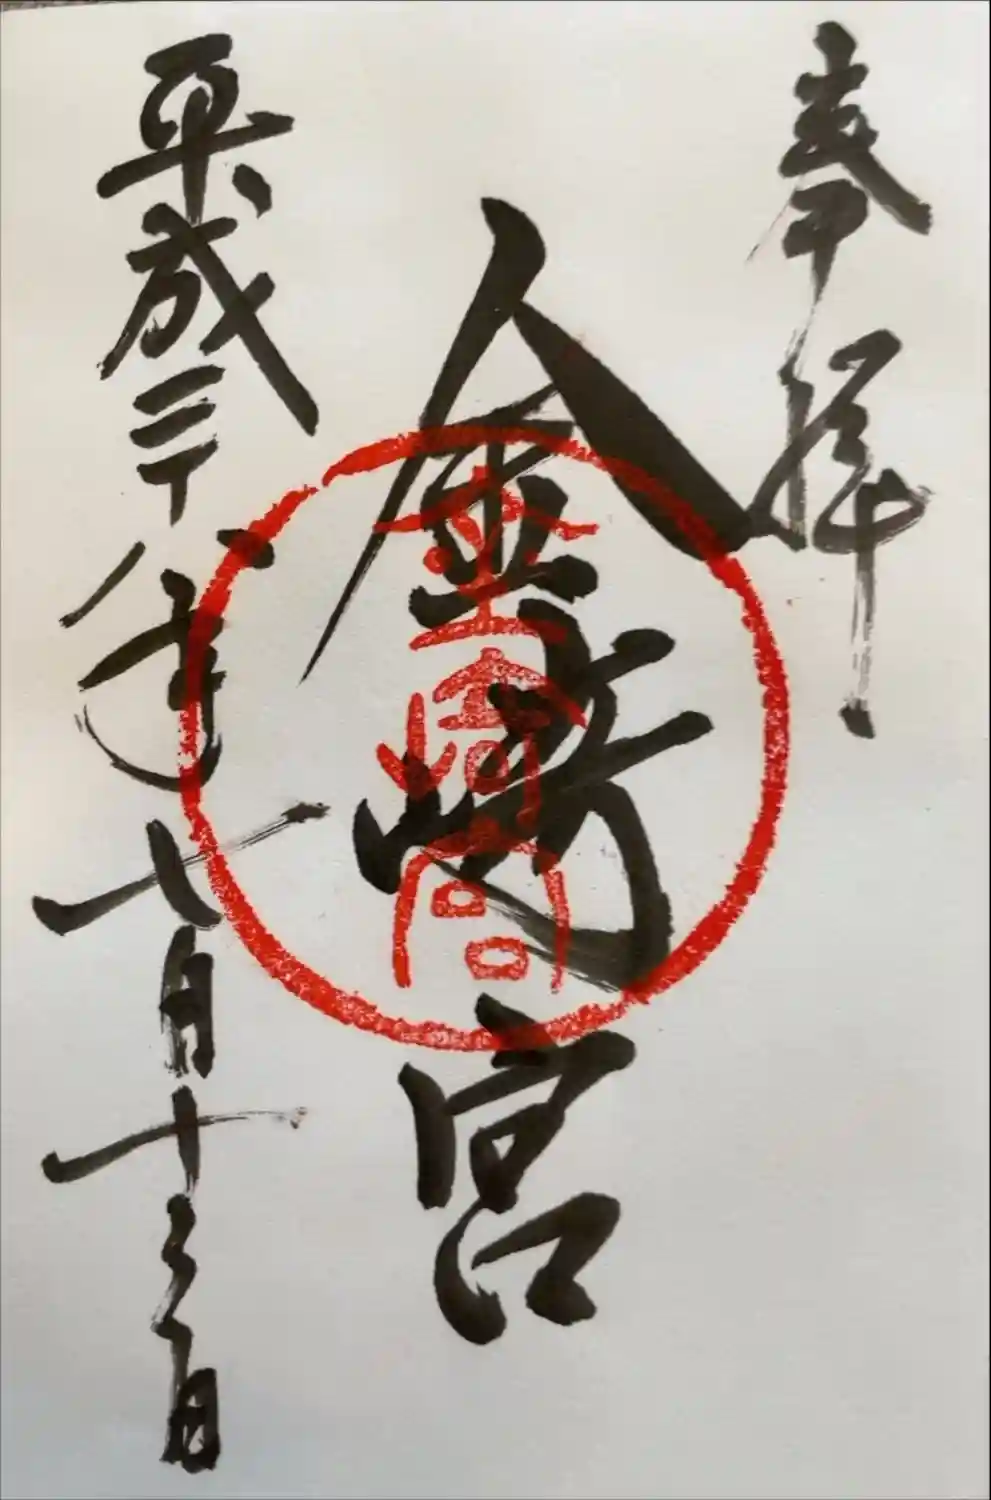 奉拝
金崎宮
金崎宮
平成三十年七月十三日